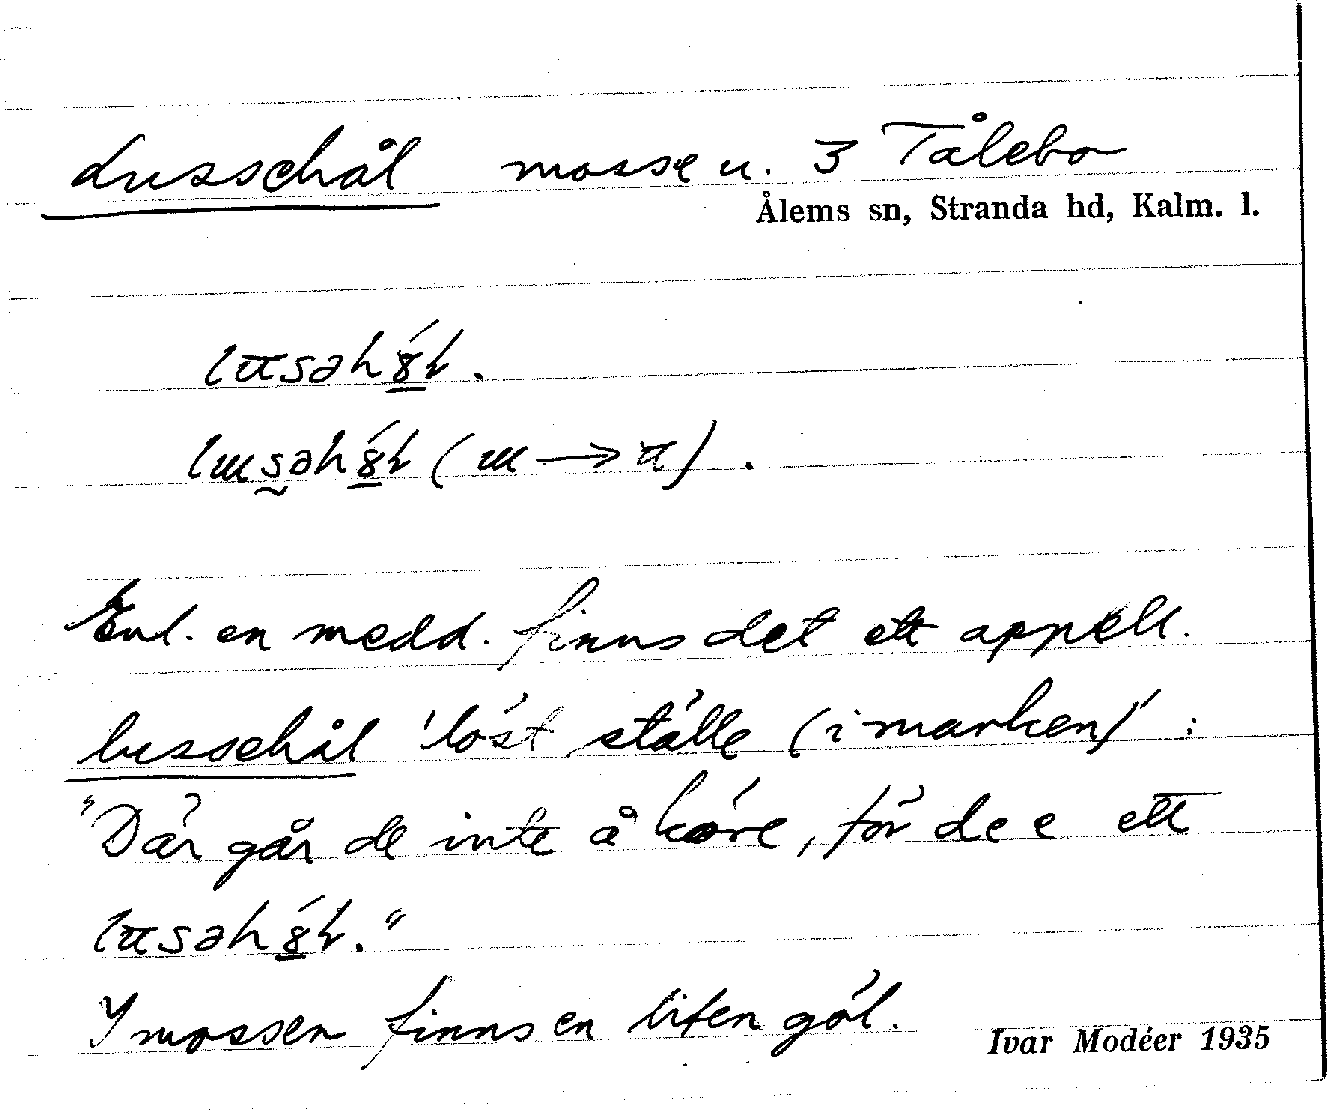 Lussehål mosse u. 3 Tålebo
Ålems sn, Stranda hd, Kalm. l.
Enl. en medd. finns det ett appell.
lussehål 'löst ställe (i marken)':
"Där går de inte å köre, för de e ett
I mossen finns en liten göl.
Ivar Modéer 1935